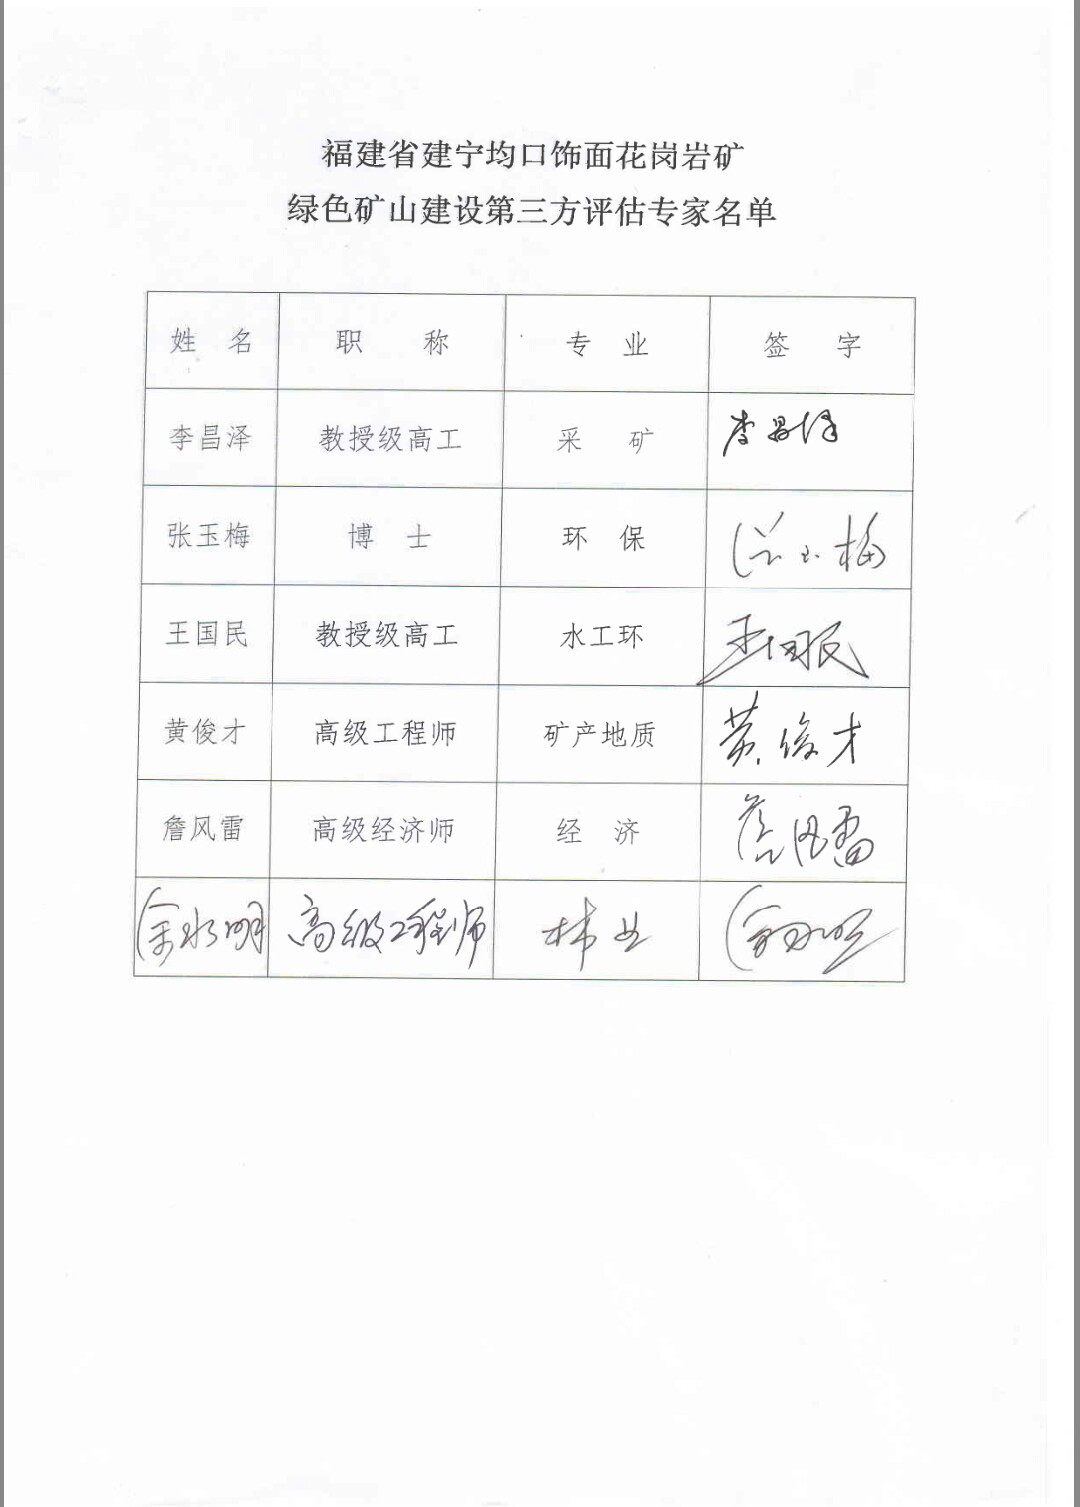 福建省建宁均口饰面花岗岩矿
绿色矿山建设第三方评估专家名单
姓 名 职 称 专 业 签 字
李昌泽 教授级高工 采 矿 李昌泽
张玉梅 博 士 环 保 张玉梅
王国民 教授级高工 水工环 王国民
黄俊才 高级工程师 矿产地质 黄俊才
詹风雷 高级经济师 经 济 詹风雷
高级工程师 林业